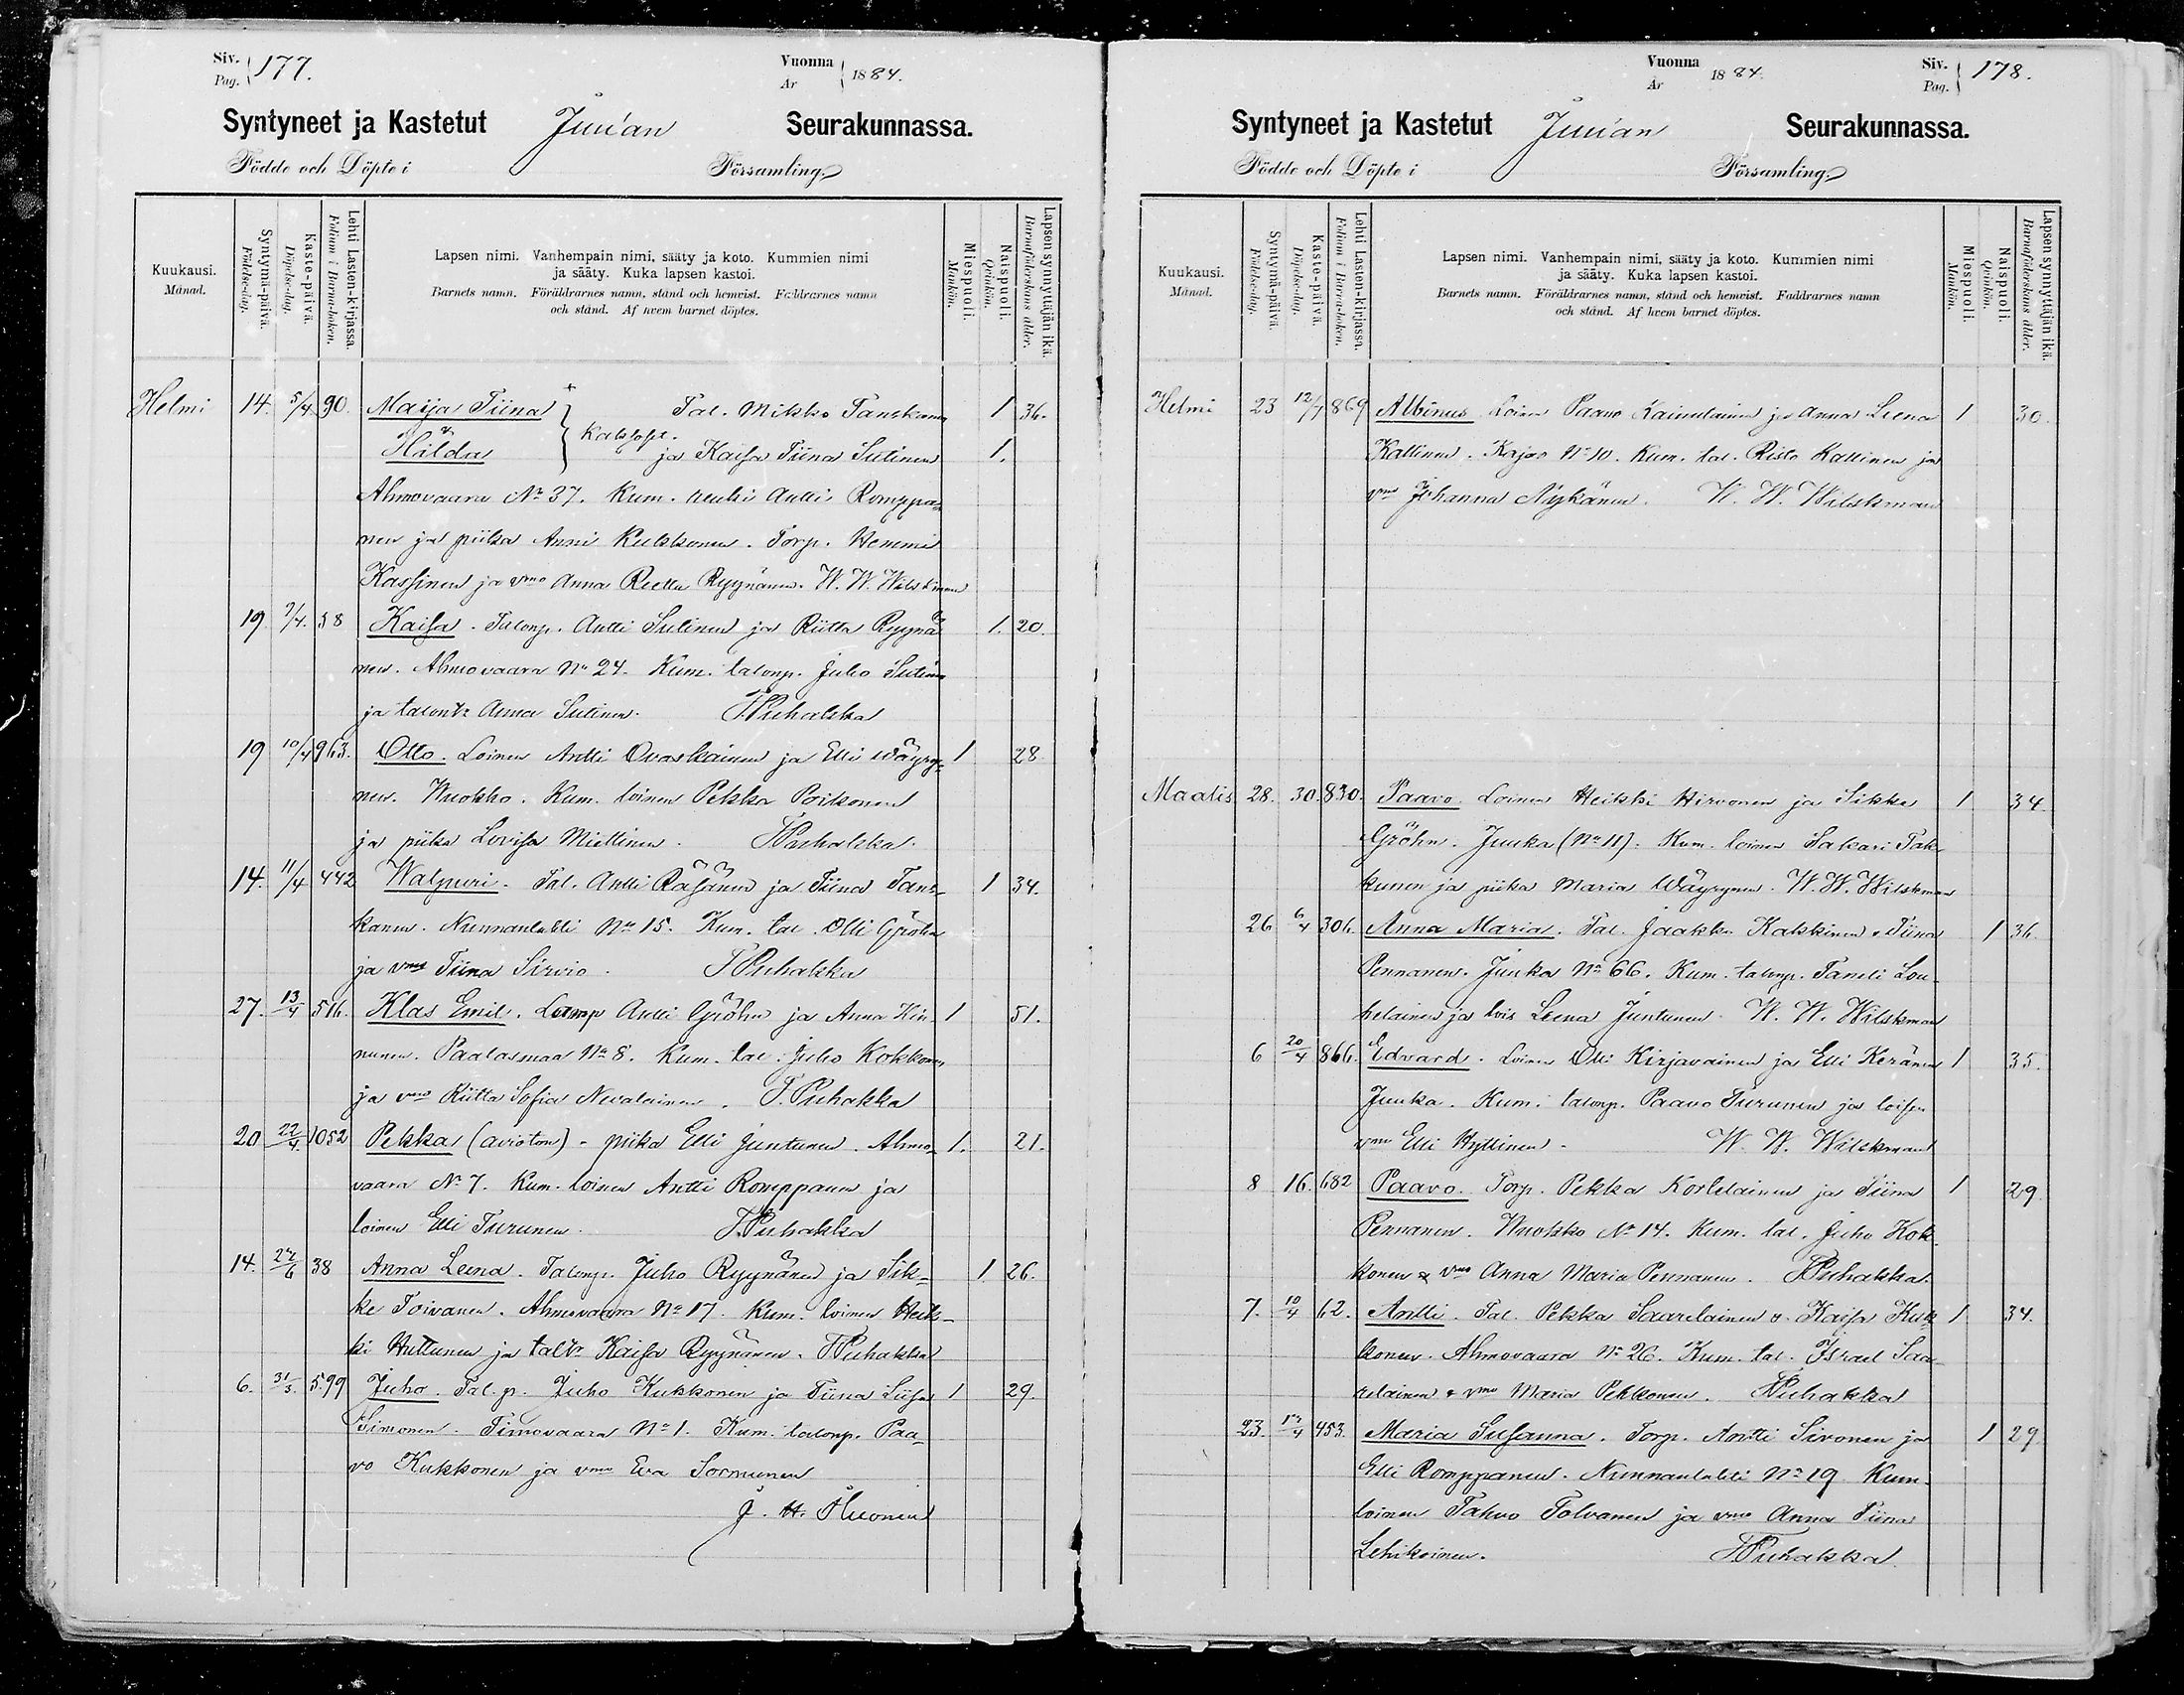 Siv. Pag. 177. Vuonna År 1884.
Syntyneet ja Kastetut Juu'an Seurakunnassa.
Födde och Döpte i Församling.
Kuukausi. Månad.
Syntymä-päivä. Födelse-dag.
Kaste-päivä. Döpelse-dag.
Lehti Lasten-kirjassa. Folium i Barna-boken.
Lapsen nimi. Vanhempain nimi, sääty ja koto. Kummien nimi
ja sääty. Kuka lapsen kastoi.
Barnets namn. Föräldrarnes namn, stånd och hemvist. Faddrarnes namn
och stånd. Af hvem barnet döptes.
Miespuoli. Mankön.
Naispuoli. Qvinkön.
Lapsen synnyttäjän ikä. Barnaföderskans ålder.
Helmi 14. 5/4. 90. Maija Tiina Tal. Mikko Tanskanen 1 36.
Hilda kaksoset. ja Kaisa Tiina Sutinen 1.
Ahmovaara No 37. Kum. renki Antti Romppa-
nen ja piika Anni Kukkonen. Torp. Hemmi
Kassinen ja vmo Anna Reetta Ryynänen. W. W. Wilskman
19. 7/4. 58 Kaisa. Talonp. Antti Sutinen ja Riitta Ryynä- 1. 20.
nen. Ahmovaara No 24. Kum. talonp. Juho Sutinen
ja talontr Anna Sutinen. T. Puhakka
19 10/4 963. Otto. Loinen Antti Ovaskainen ja Elli Wäyry- 1 28
nen. Wuokko. Kum. loinen Pekka Poikonen
ja piika Lovisa Miettinen. T. Puhakka.
14. 11/4 442 Walpuri. Tal. Antti Räsänen ja Tiina Tans- 1 34.
kanen. Nunnanlahti No 15. Kum. tal. Olli Gröhn
ja vmo Tiina Sirvio. T. Puhakka
27. 13/4 516. Klas Emil. Lamp Antti Gröhn ja Anna Kin- 1 51.
nunen. Paalasmaa No 8. Kum. tal. Juho Kokkonen
ja vmo Riitta Sofia Nevalainen. T. Puhakka
20 22/4. 1052 Pekka (avioton) - piika Elli Juntunen. Ahmo- 1. 21.
vaara No 7. Kum. loinen Antti Romppanen ja
loinen Elli Turunen. T. Puhakka
14. 24/6 38 Anna Leena. Talonp. Juho Ryynänen ja Sik- 1 26.
ke Toivanen. Ahmovaara No 17. Kum. loinen Heik-
ki Huttunen ja taltr Kaisa Ryynänen. T. Puhakka
6. 31/3. 599 Juho. Tal.p. Juho Kukkonen ja Tiina Liisa 1 29.
Simonen. Timovaara No 1. Kum. talonp. Paa-
vo Kukkonen ja vmo Eva Sormunen
J. H.
Vuonna År 1884. Siv. Pag. 178.
Syntyneet ja Kastetut Juu'an Seurakunnassa.
Födde och Döpte i Församling.
Kuukausi. Månad.
Syntymä-päivä. Födelse-dag.
Kaste-päivä. Döpelse-dag.
Lehti Lasten-kirjassa. Folium i Barna-boken.
Lapsen nimi. Vanhempain nimi, sääty ja koto. Kummien nimi
ja sääty. Kuka lapsen kastoi.
Barnets namn. Föräldrarnes namn, stånd och hemvist. Faddrarnes namn
och stånd. Af hvem barnet döptes.
Miespuoli. Mankön.
Naispuoli. Qvinkön.
Lapsen synnyttäjän ikä. Barnaföderskans ålder.
Helmi 23 12/7 869 Albinus Loinen Paavo Kainulainen ja Anna Leena 1 30.
Kallinen. Kajoo No 10. Kum. tal. Risto Kallinen ja
vmo Johanna Nykänen. W. W. Wilskman
Maalis 28. 30. 830. Paavo. Loinen Heikki Hirvonen ja Sikke 1 34.
Gröhn. Juuka (No 11). Kum. loinen Sakari Tak-
kunen ja piika Maria Wäyrynen. W. W. Wilskman
26 6/4 306. Anna Maria. Tal. Jaakko Kakkinen & Tiina 1 36.
Pennanen. Juuka No 66. Kum. talonp. Taneli Lou-
helainen ja lois Leena Juntunen. W. W. Wilskman
6 20/4 866. Edvard. Loinen Olli Kirjavainen ja Elli Keränen 1 35.
Juuka. Kum. talonp. Paavo Turunen ja loisen
vmo Elli Hyttinen. W. W. Wilskman
8 16. 682 Paavo. Torp. Pekka Kortelainen ja Tiina 1 29.
Pennanen. Wuokko No 14. Kum. tal. Juho Kok-
konen & vmo Anna Maria Pennanen. T. Puhakka.
7. 10/4 62. Antti. Tal. Pekka Saarelainen & Kaisa Kuk- 1 34.
konen. Ahmovaara No 26. Kum. tal. Israel Saa-
relainen & vmo Maria Pekkonen. T. Puhakka
23. 12/4 453. Maria Susanna. Torp. Antti Sivonen ja 1 29.
Elli Romppanen. Nunnanlahti No 19 Kum.
loinen Tahvo Tolvanen ja vmo Anna Tiina
Lehikoinen. T. Puhakka